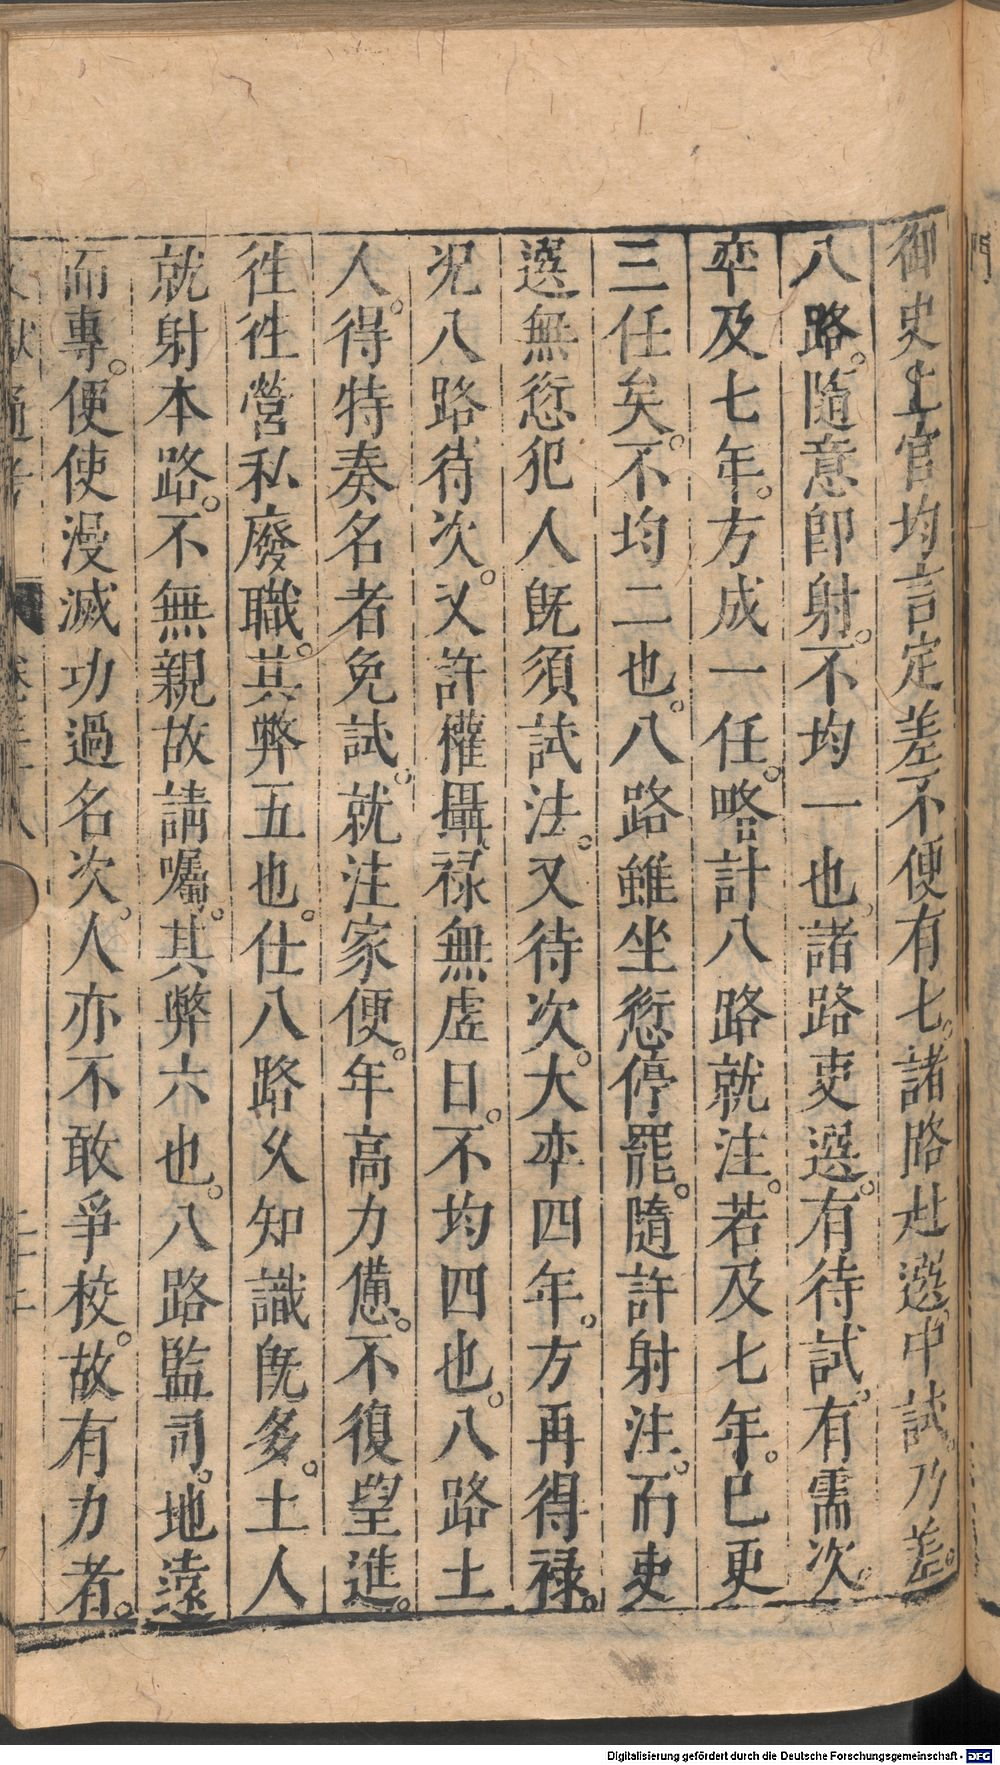 御史上官均言定差不便有七。諸路赴選。中試。乃差。
八路。隨意即射。不均一也。諸路吏選。有待試。有需次。
卒及七年。方成一任。略計八路就注。若及七年。已更
三任矣。不均二也。八路雖坐愆停罷。隨許射注。而吏
選無愆犯人既須試法。又待次。大率四年。方再得祿。
況八路待次。又許權攝。祿無虛日。不均四也。八路土
人。得特奏名者免試。就注家便。年高力憊。不復望進。
徃徃營私廢職。其弊五也。仕八路久知識既多。土人
就射本路。不無親故請囑。其弊六也。八路監司。地遠
而專。便使漫滅功過名次。人亦不敢爭校。故有力者。
文獻通考 卷三十八
Digitalisierung gefördert durch die Deutsche Forschungsgemeinschaft - DFG